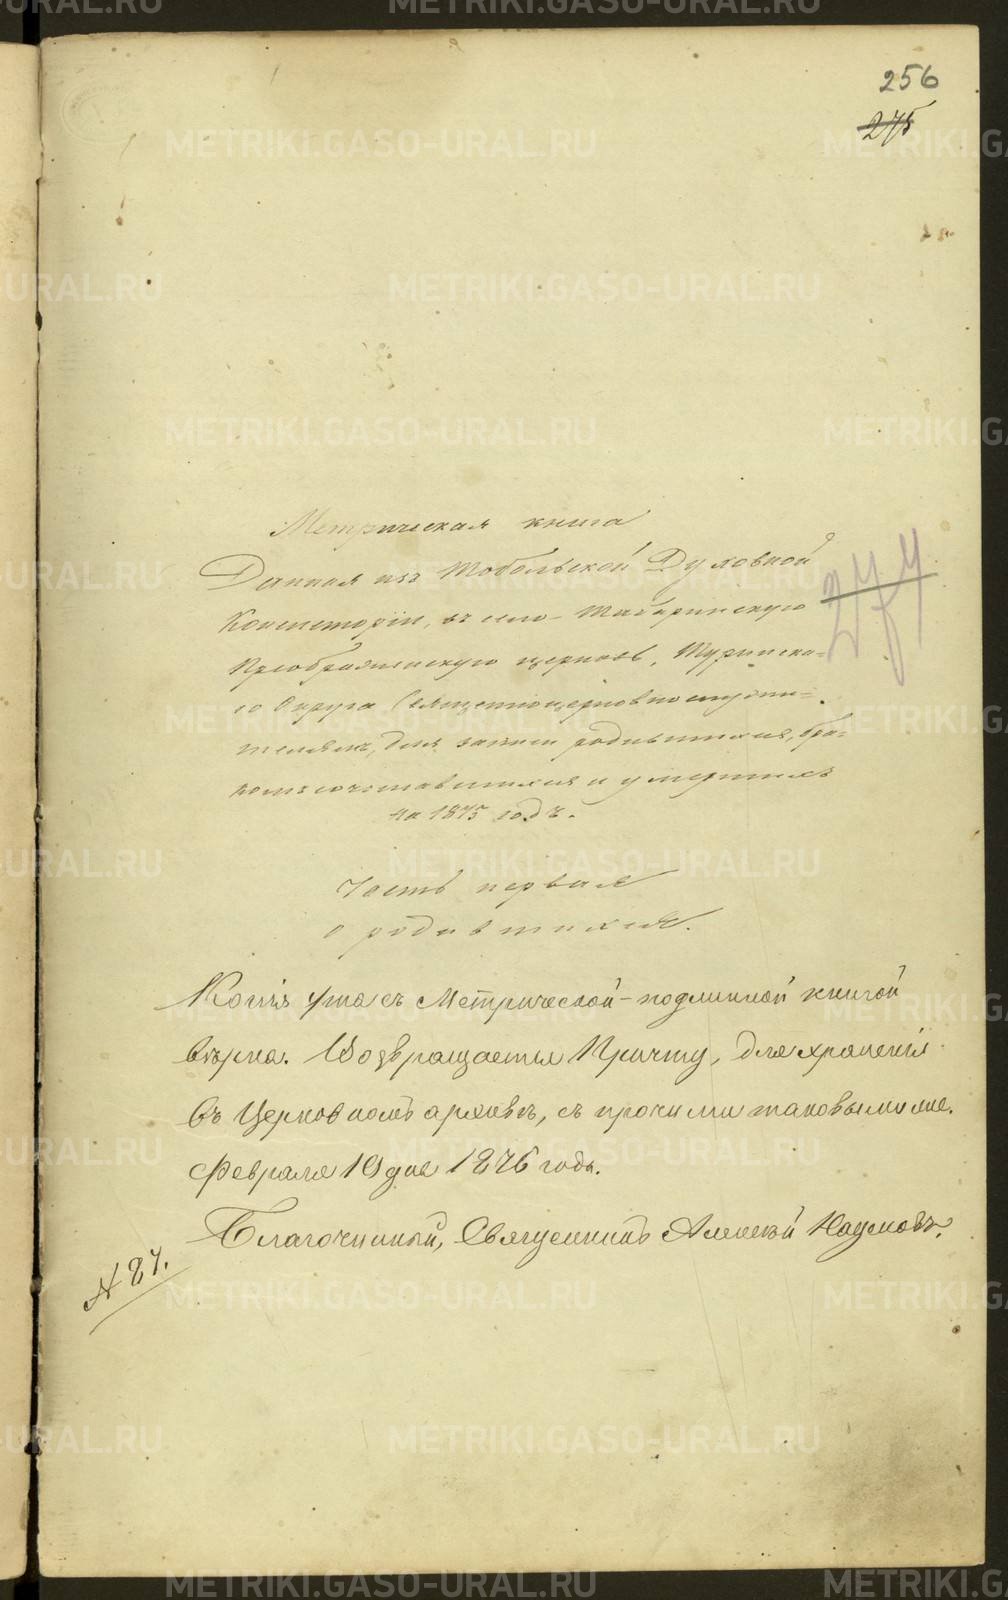 256
275
Метрическая книга
Данная изъ Тобольской Духовной
Консисторіи, въ село Табаринскую
Преображенскую церковь, Туринска-
го Округа Священноцерковнослужи-
телямъ, для записи родившихся, бра-
комъ сочетавшихся и умершихъ
на 1875 годъ.
277
Часть первая
о родившихся.
Копія эта съ Метрической подлинной книгой
вѣрна. Возвращается Причту, для храненія
въ Церковномъ архивѣ, съ прочими таковыми же.
Февраля 10 дня 1876 года.
Благочинный, Священникъ Алексѣй Наумовъ.
№ 87.
METRIKI.GASO-URAL.RU